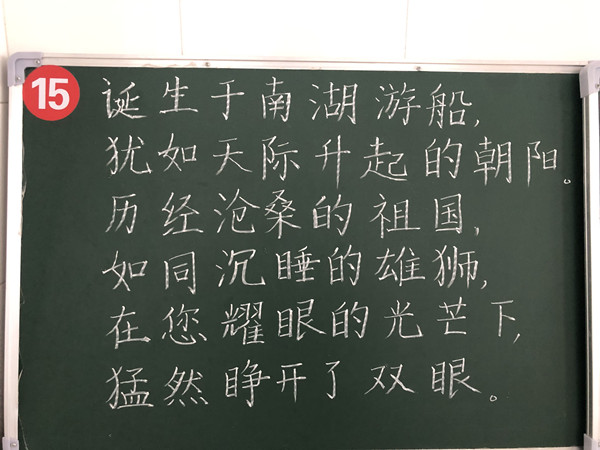 15
诞生于南湖游船,
犹如天际升起的朝阳。
历经沧桑的祖国,
如同沉睡的雄狮,
在您耀眼的光芒下,
猛然睁开了双眼。